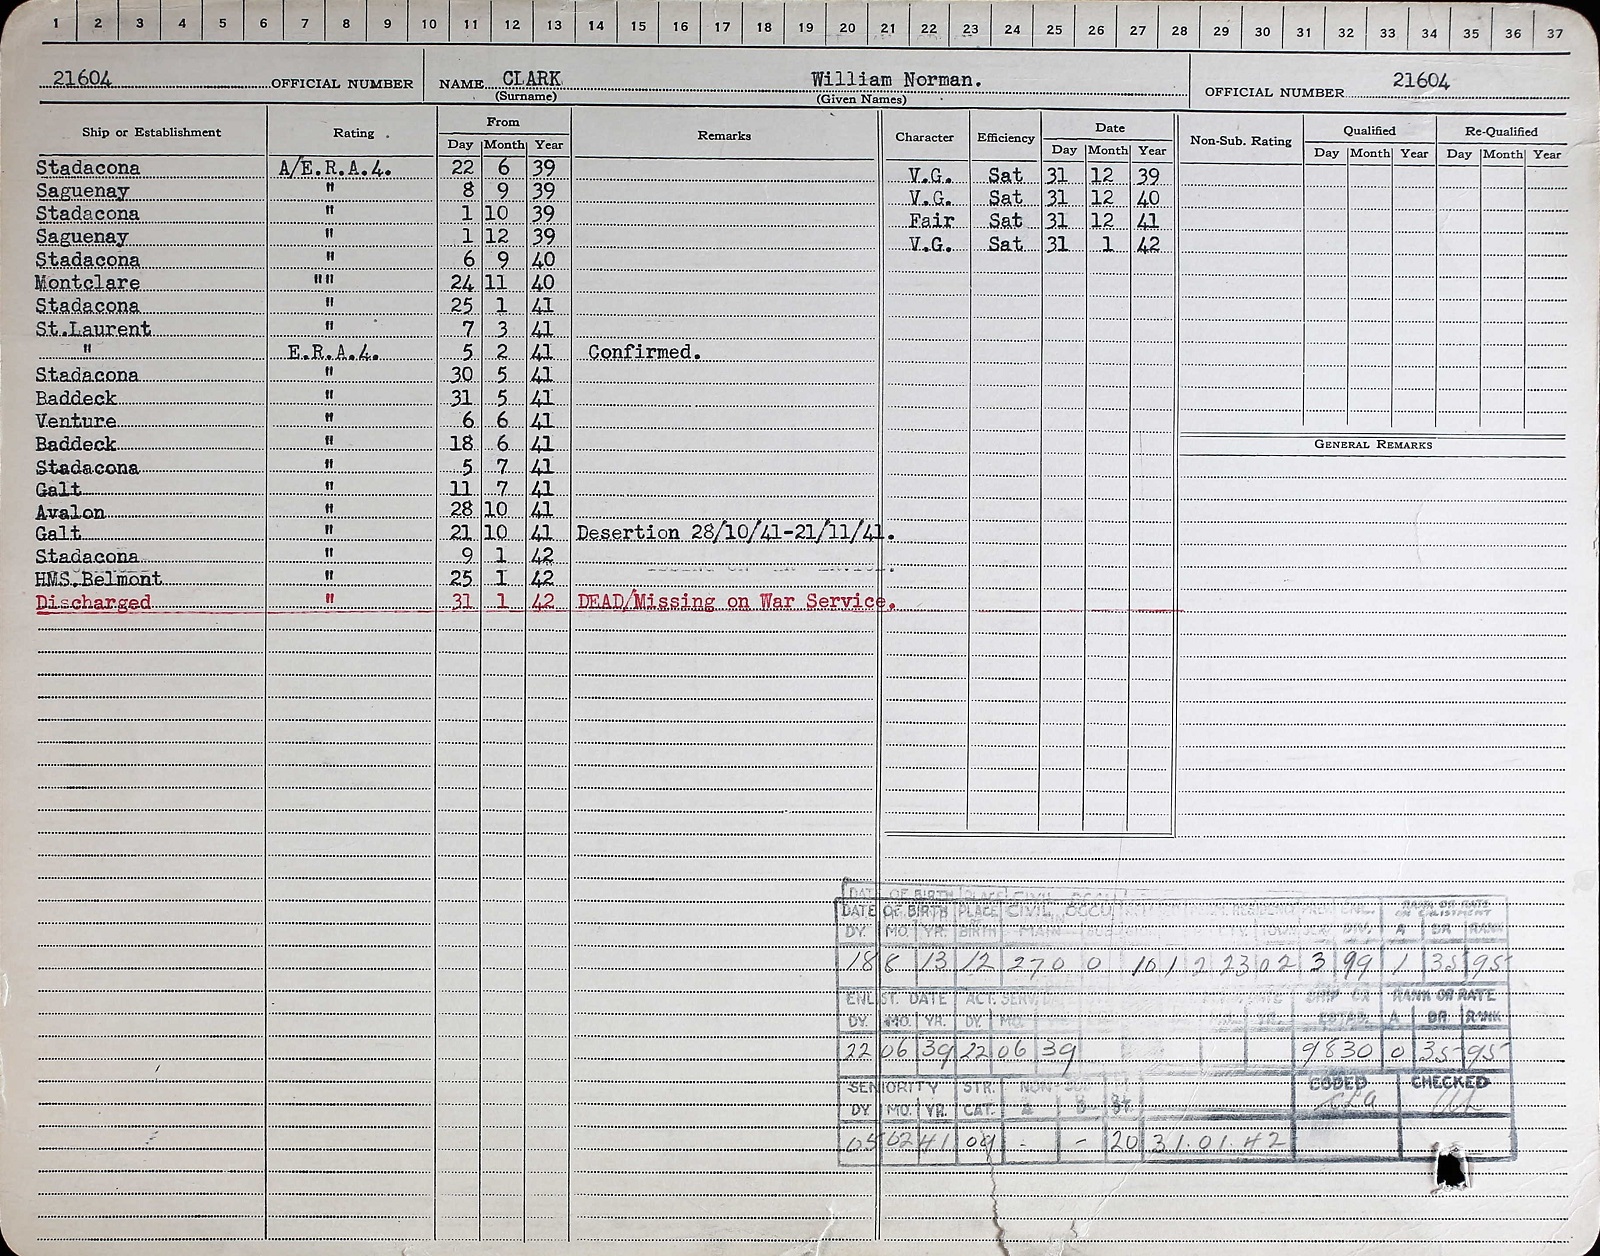 1 2 3 4 5 6 7 8 9 10 11 12 13 14 15 16 17 18 19 20 21 22 23 24 25 26 27 28 29 30 31 32 33 34 35 36 37
21604 OFFICIAL NUMBER NAME CLARK William Norman. OFFICIAL NUMBER 21604
(Surname) (Given Names)
Ship or Establishment Rating From Remarks Character Efficiency Date Non-Sub. Rating Qualified Re-Qualified
Day Month Year Day Month Year Day Month Year Day Month Year
Stadacona A/E.R.A.4. 22 6 39 V.G. Sat 31 12 39
Saguenay " 8 9 39 V.G. Sat 31 12 40
Stadacona " 1 10 39 Fair Sat 31 12 41
Saguenay " 1 12 39 V.G. Sat 31 1 42
Stadacona " 6 9 40
Montclare "" 24 11 40
Stadacona " 25 1 41
St.Laurent " 7 3 41
" E.R.A.4. 5 2 41 Confirmed.
Stadacona " 30 5 41
Baddeck " 31 5 41
Venture " 6 6 41
Baddeck " 18 6 41
GENERAL REMARKS
Stadacona " 5 7 41
Galt " 11 7 41
Avalon " 28 10 41
Galt " 21 10 41 Desertion 28/10/41-21/11/41.
Stadacona 9 1 42
HMS.Belmont " 25 1 42
Discharged " 31 1 42 DEAD/Missing on War Service.
DATE OF BIRTH PLACE CIVIL OCCU
DATE OF BIRTH PLACE CIVIL OCCU RANK OR RATE
DY. MO. YR. BIRTH MAIN DIV. A BR RANK
18 8 13 12 270 0 101 2 23 02 3 99 1 35 95
ENLIST. DATE ACT. SERV. SHIP OR RANK OR RATE
DY. MO. YR. DY. MO. YR. ESTAB. A BR. RANK
22 06 39 22 06 39 9830 0 35 95
SENIORITY STR. NON- CODED CHECKED
DY MO. YR. CAT.
05 02 41 09 - - 20 31.01.42